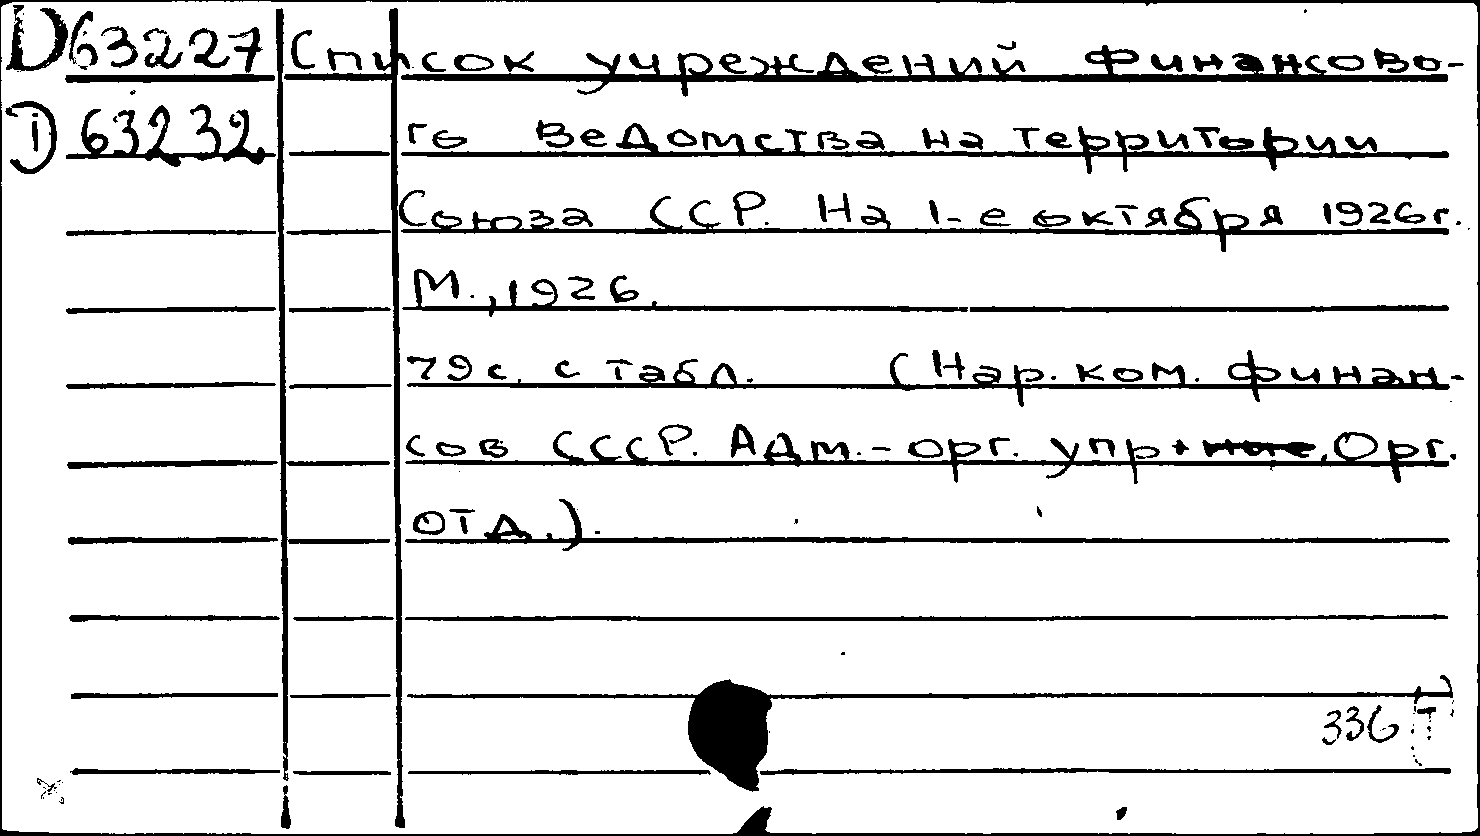 D63227 Список учреждений финансово-
D 63232 го ведомства на территории
Союза ССР. На 1-е октября 1926г.
М., 1926.
79с. с табл. (Нар. ком. финан-
сов СССР. Адм.-орг. упр. Орг.
отд.).
336 (Т)